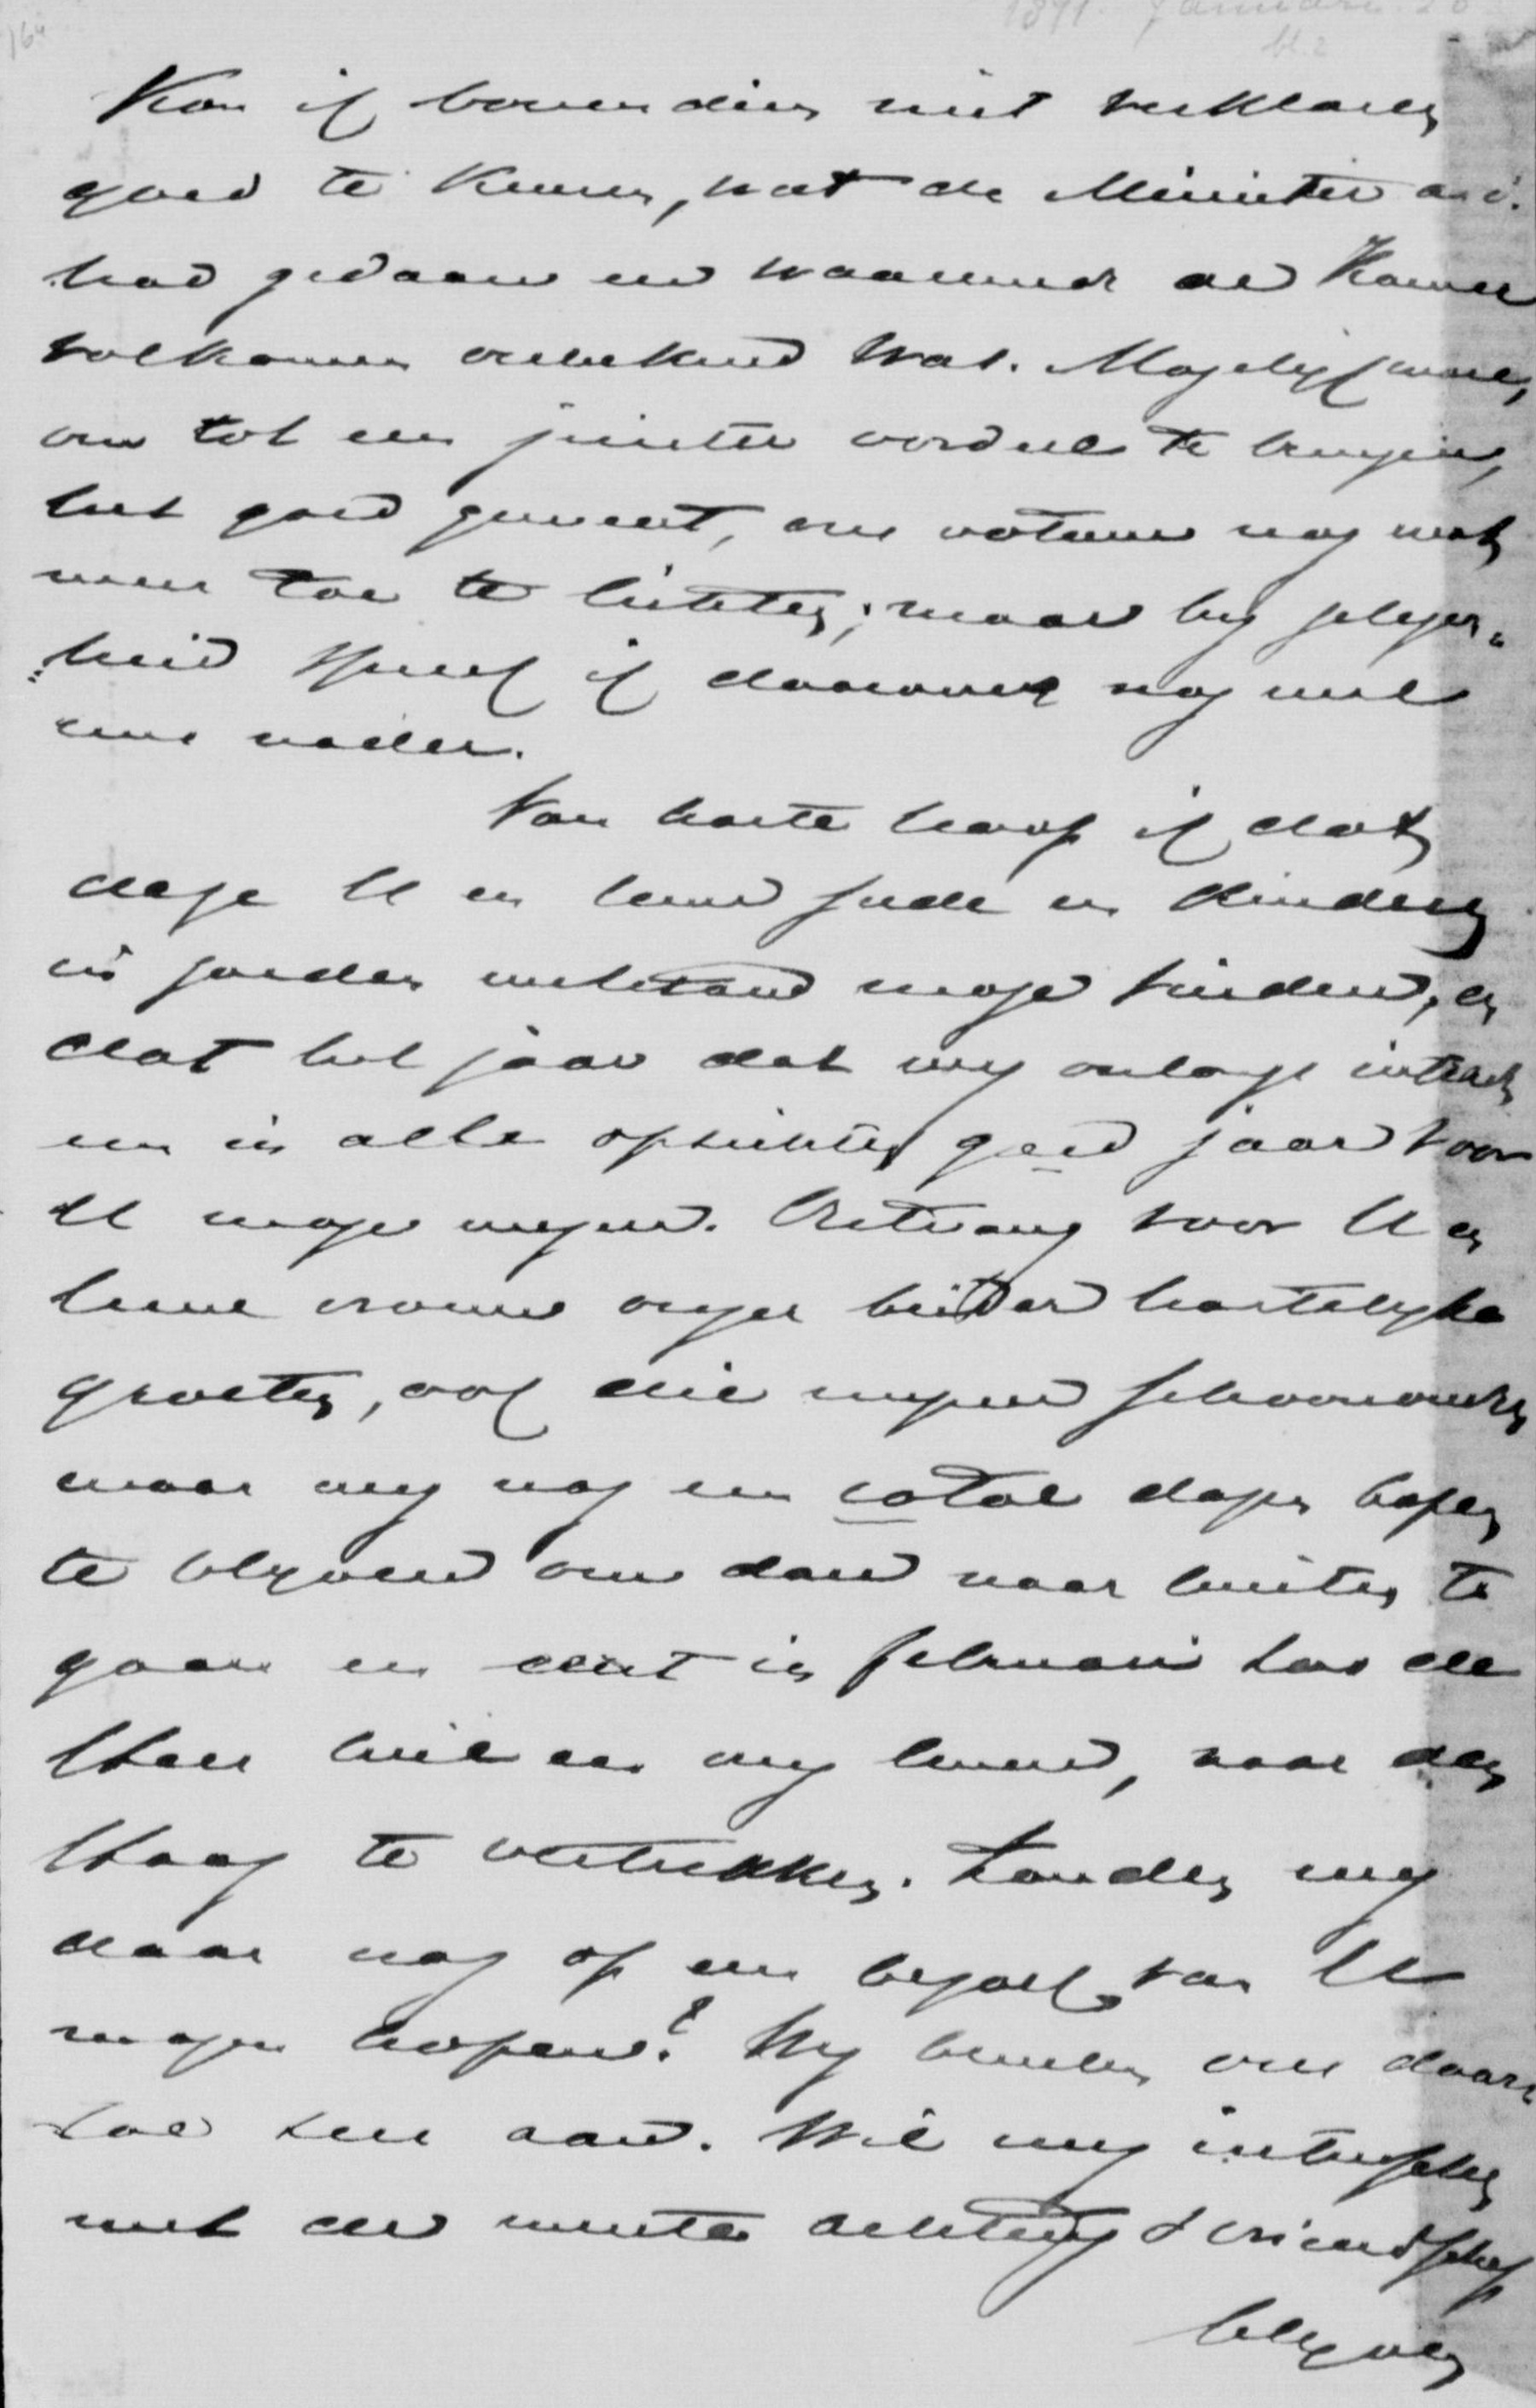 164
1891. Januari 20
bl. 2
Kon ik bovendien niet verklaren
goed te keuren, wat de Minister a. i.
had gedaan en waarmede de Kamer
volkomen onbekend was. Mogelijk ware,
om tot een juister oordeel te brengen,
het goed geweest, ons votum nog wat
meer toe te lichten; maar bij gelegen„
„heid spreek ik daarover nog wel
eens nader.
Van harte hoop ik dat
deze U en Uwe gade en kinderen
in goeden welstand moge vinden, en
dat het jaar dat wij onlangs intraden
een in alle opzichten goed jaar voor
U moge wezen. Ontvang voor U en
Uwe vrouw onzer beider hartelyke
groeten, ook die mijner schoonouders
waar wij nog een total dagen hopen
te blyven om dan naar buiten te
gaan en eerst in februari
naar den
Haag te vertrekken. Zouden wij
daar nog op een bezoek van U
mogen hopen? Wij bevelen ons daar
toe zeer aan. Wil mij intusschen
met de meeste achting & vriendschap
blyven